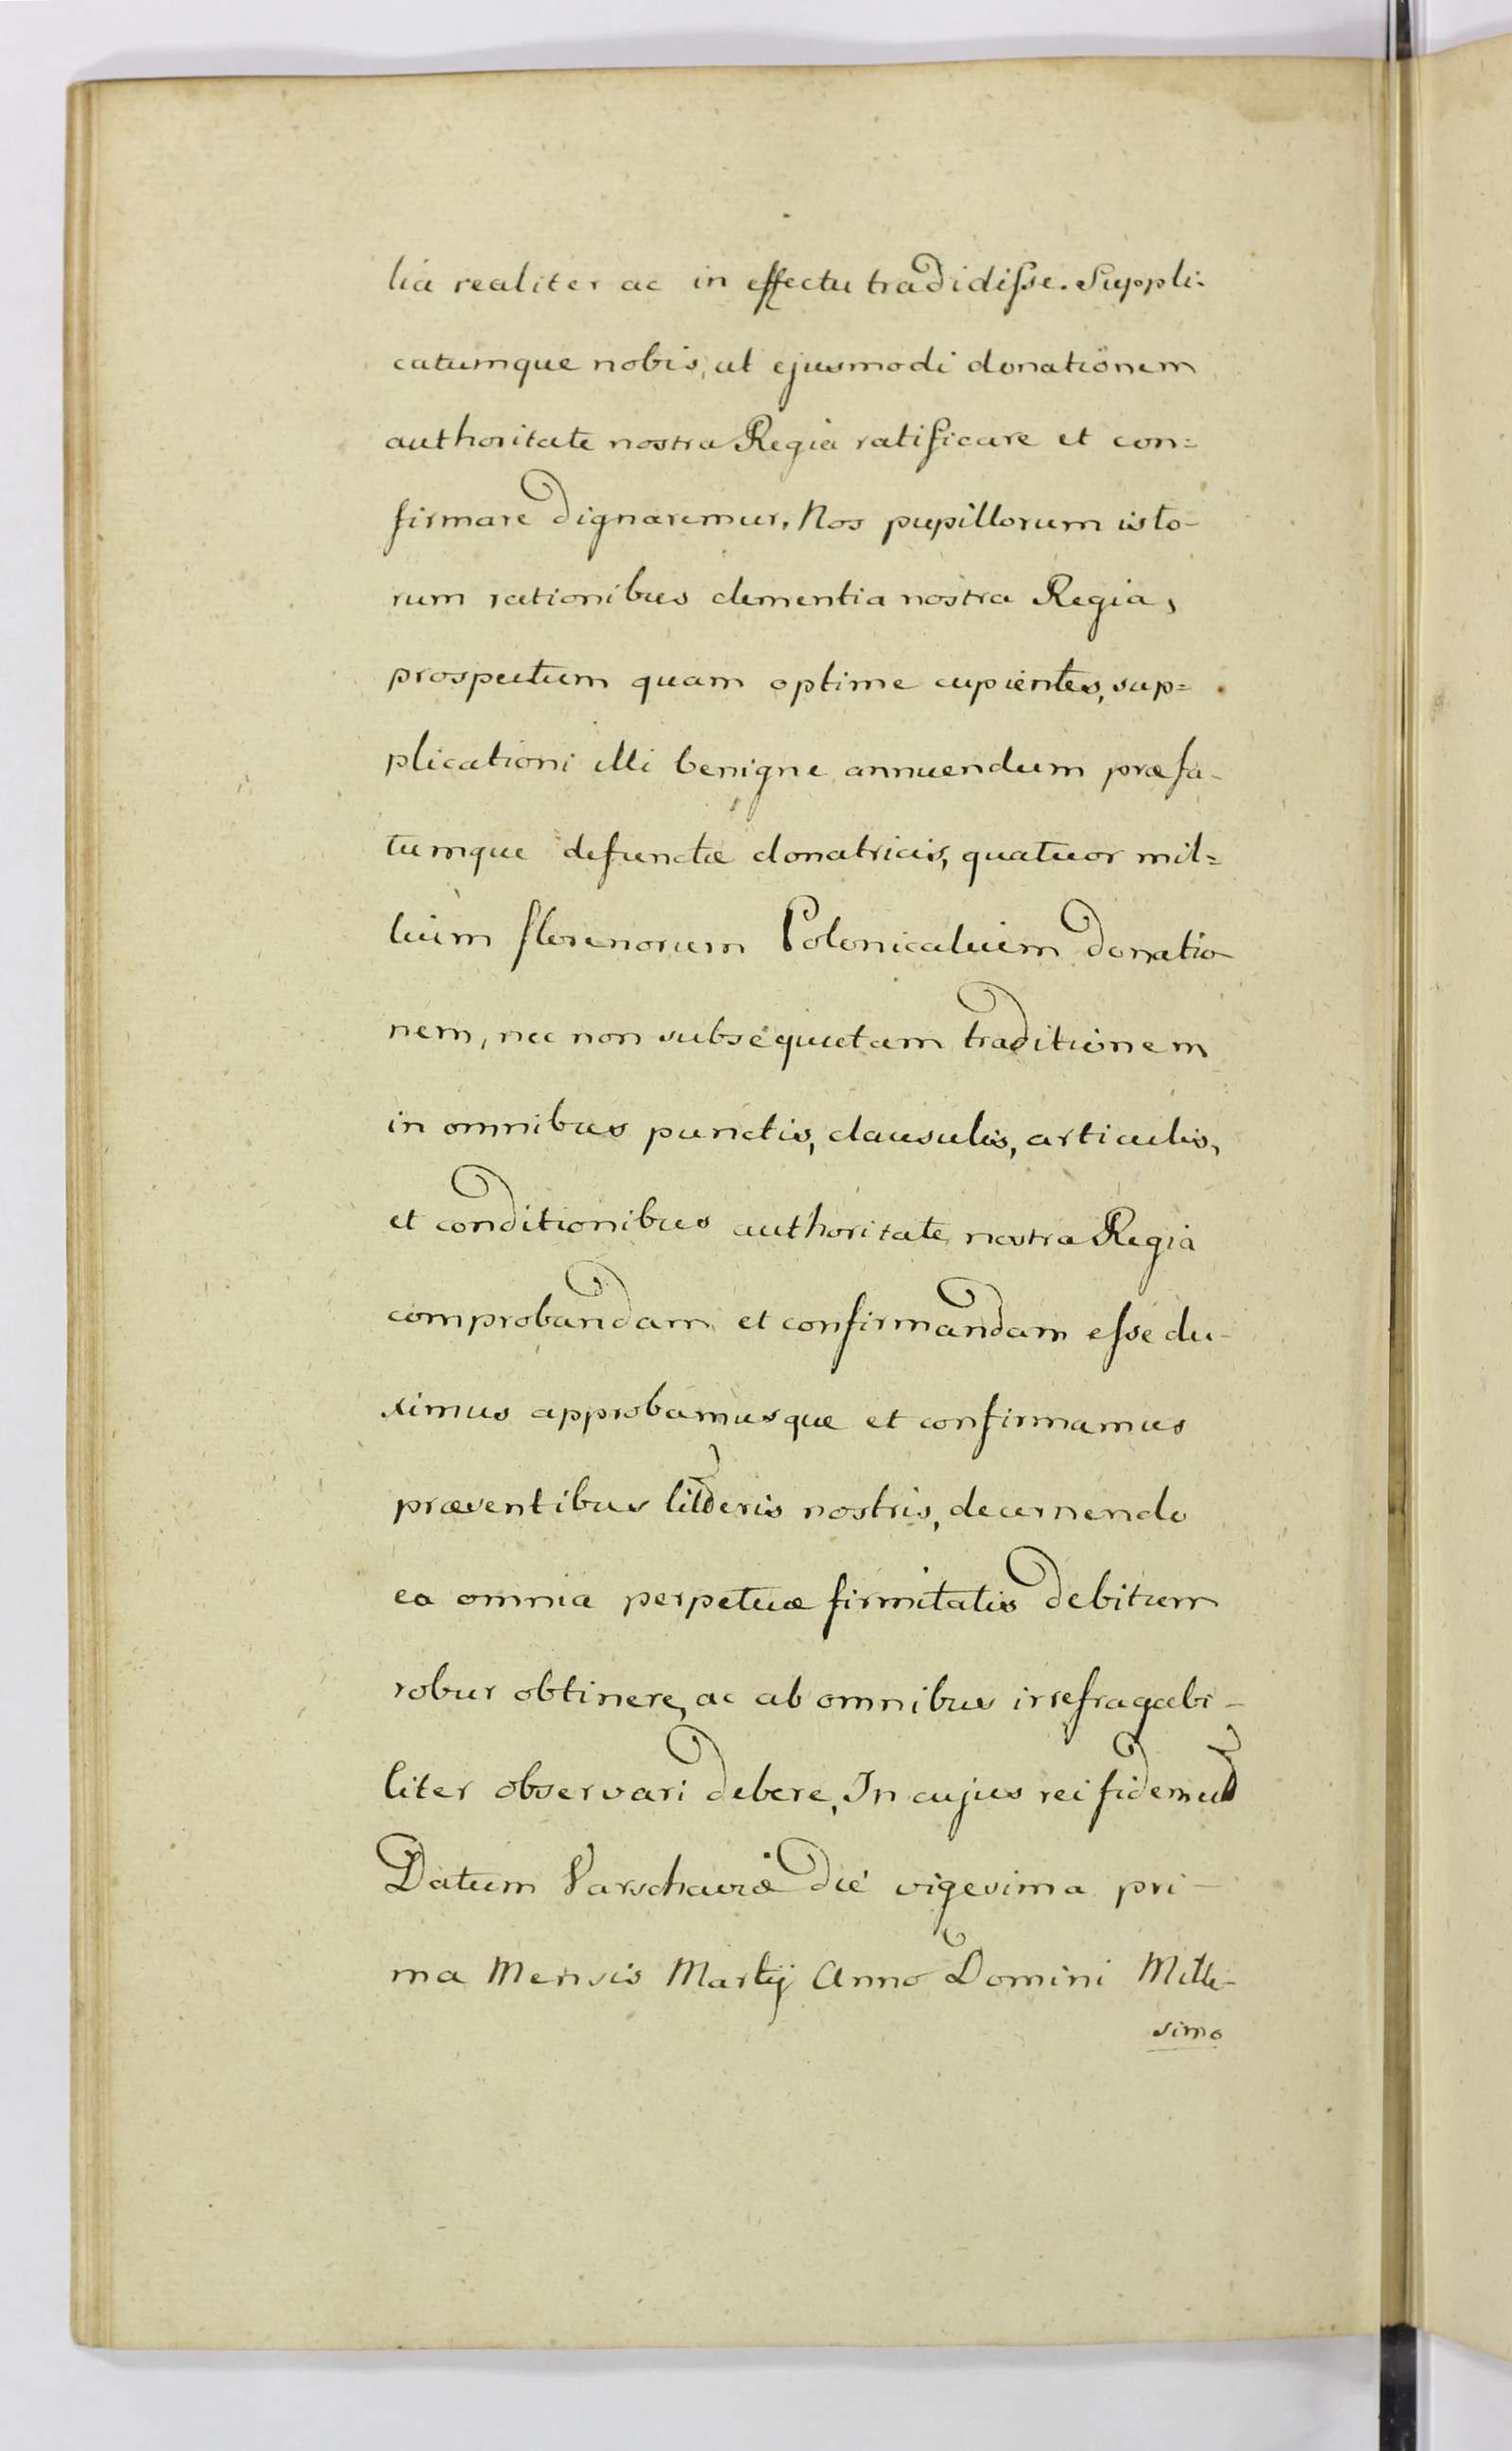 lia realiter ac in effectu tradidiſse. Suppli-
catumque nobis, ut ejusmodi donationem
authoritate nostra Regia ratificare et con=
firmare dignaremur. Nos pupillorum isto-
rum rationibus clementia nostra Regia,
prospectum quam optime cupientes, sup=
plicationi illi benigne annuendum præfa-
tumque defunctæ donatricis, quatuor mil=
lium florenorum Polonicalium donatio-
nem, nec non subsequutam traditionem
in omnibus punctis, clausulis, articulis,
et conditionibus authoritate nostra Regia
comprobandam et confirmandam eſse du-
ximus approbamusque et confirmamus
præsentibus litderis nostris, decernendo
ea omnia perpetuæ firmitatis debitum
robur obtinere, ac ab omnibus irrefragabi-
liter observari debere, In cujus rei fidem
Datum Varschaviæ die vigesima pri-
ma Mensis Martij Anno Domini Mille-
simo